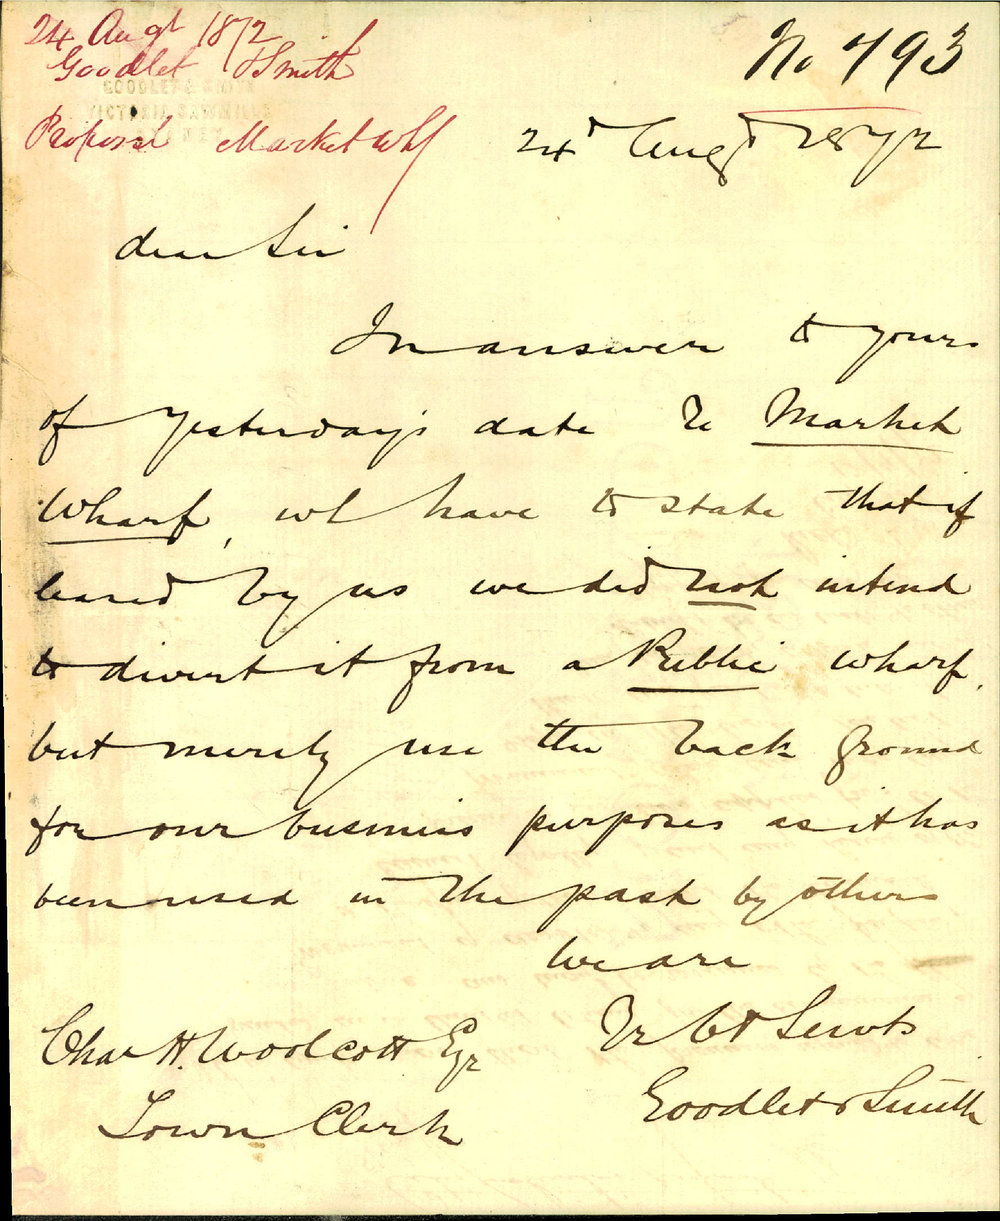 24 Augt 1872
Goodlet & Smith
GOODLET & SMITH
VICTORIA SAWMILLS
SYDNEY
Proposal Market Whf
No 793
24th Augt 1872
dear Sir
In answer to yours
of yesterday's date re Market
Wharf, we have to state that if
leased by us we did not intend
to divert it from a Public wharf,
but merely use the back ground
for our business purposes as it has
been used in the past by others
We are
Yr Obt Servts
Goodlet & Smith
Chas H. Woolcott Esqr
Town Clerk